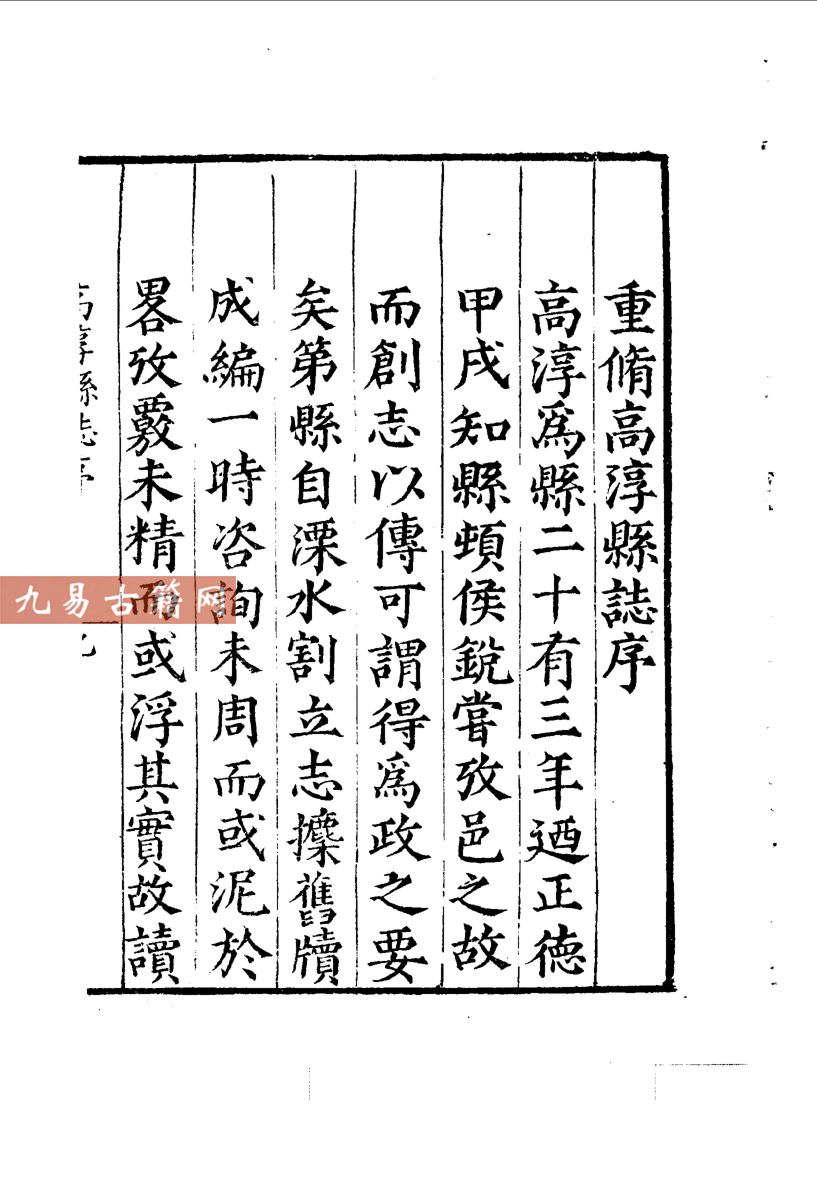 重脩高淳縣誌序
高淳爲縣二十有三年迺正德
甲戌知縣頓侯銳嘗攷邑之故
而創志以傳可謂得爲政之要
矣第縣自溧水割立志攈舊牘
成編一時咨詢未周而或泥於
畧攷覈未精而或浮其實故讀
高淳縣志序
九易古籍网